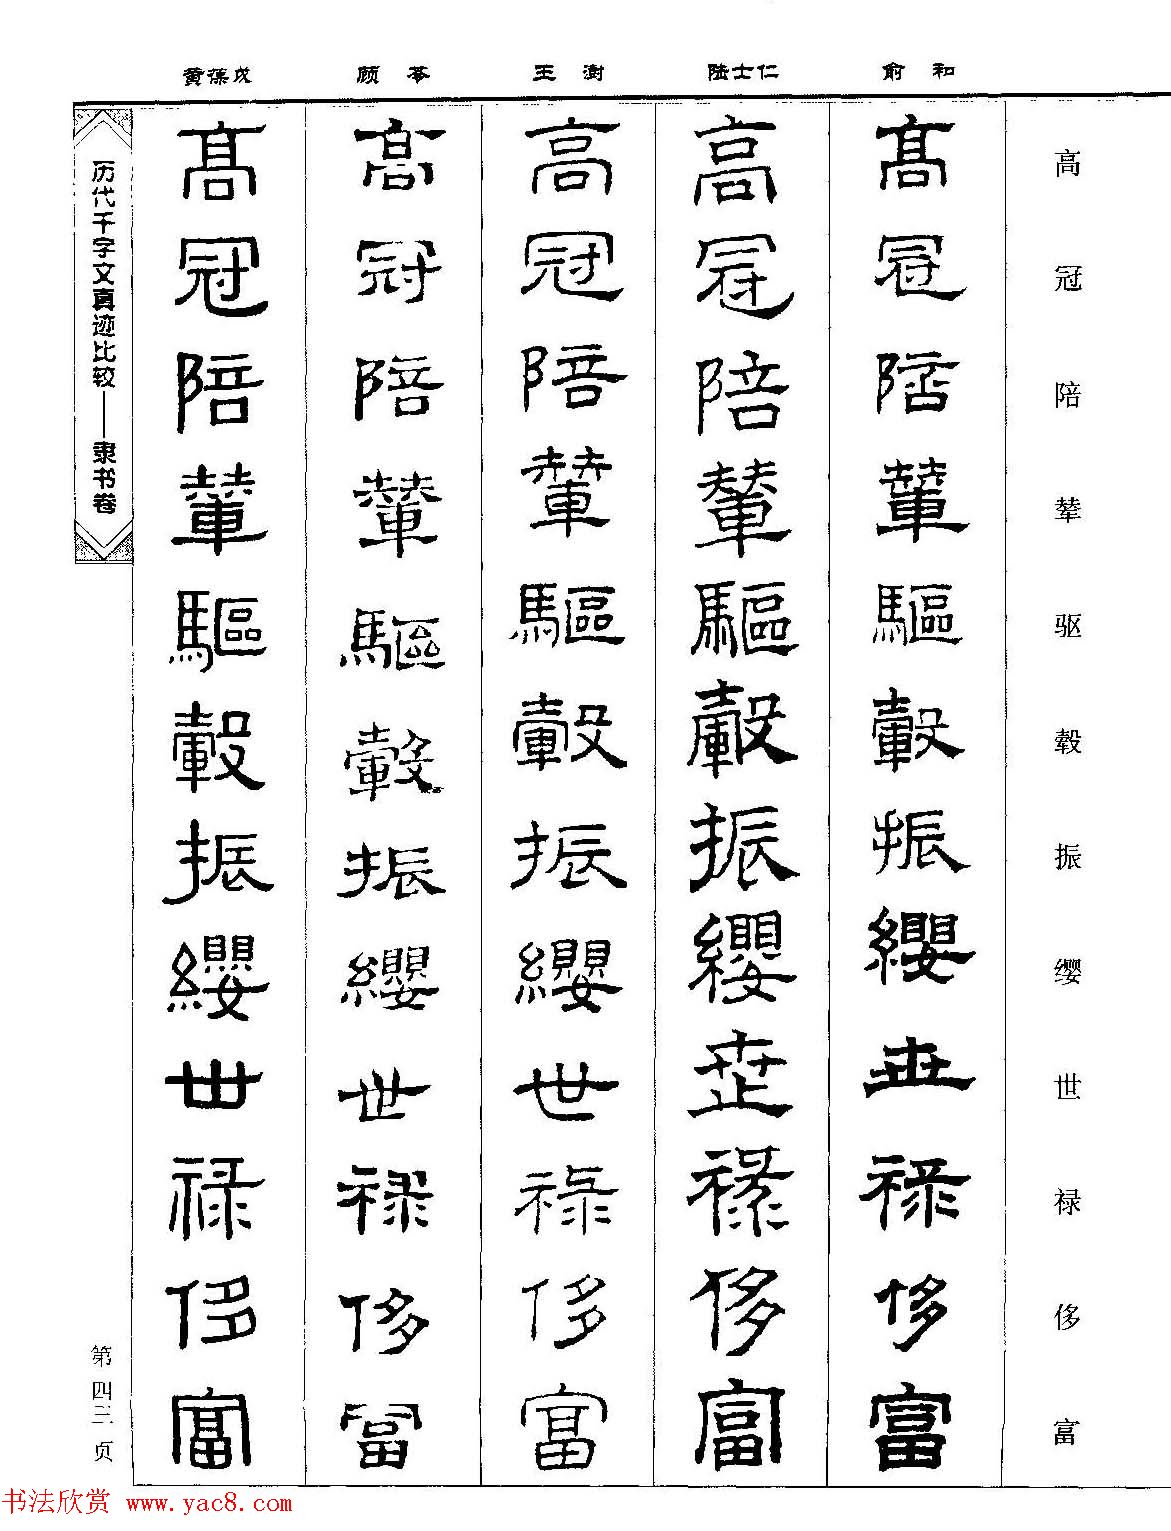 俞和 陆士仁 王澍 顾苓 黄葆戉
高冠陪辇驱毂振缨世禄侈富
高冠陪輦驅轂振纓世禄侈富
高冠陪輦驅轂振纓世禄侈富
高冠陪輦驅轂振纓世禄侈富
高冠陪輦驅轂振纓世禄侈富
高冠陪輦驅轂振纓世禄侈富
历代千字文真迹比较——隶书卷
第四三页
书法欣赏 www.yac8.com